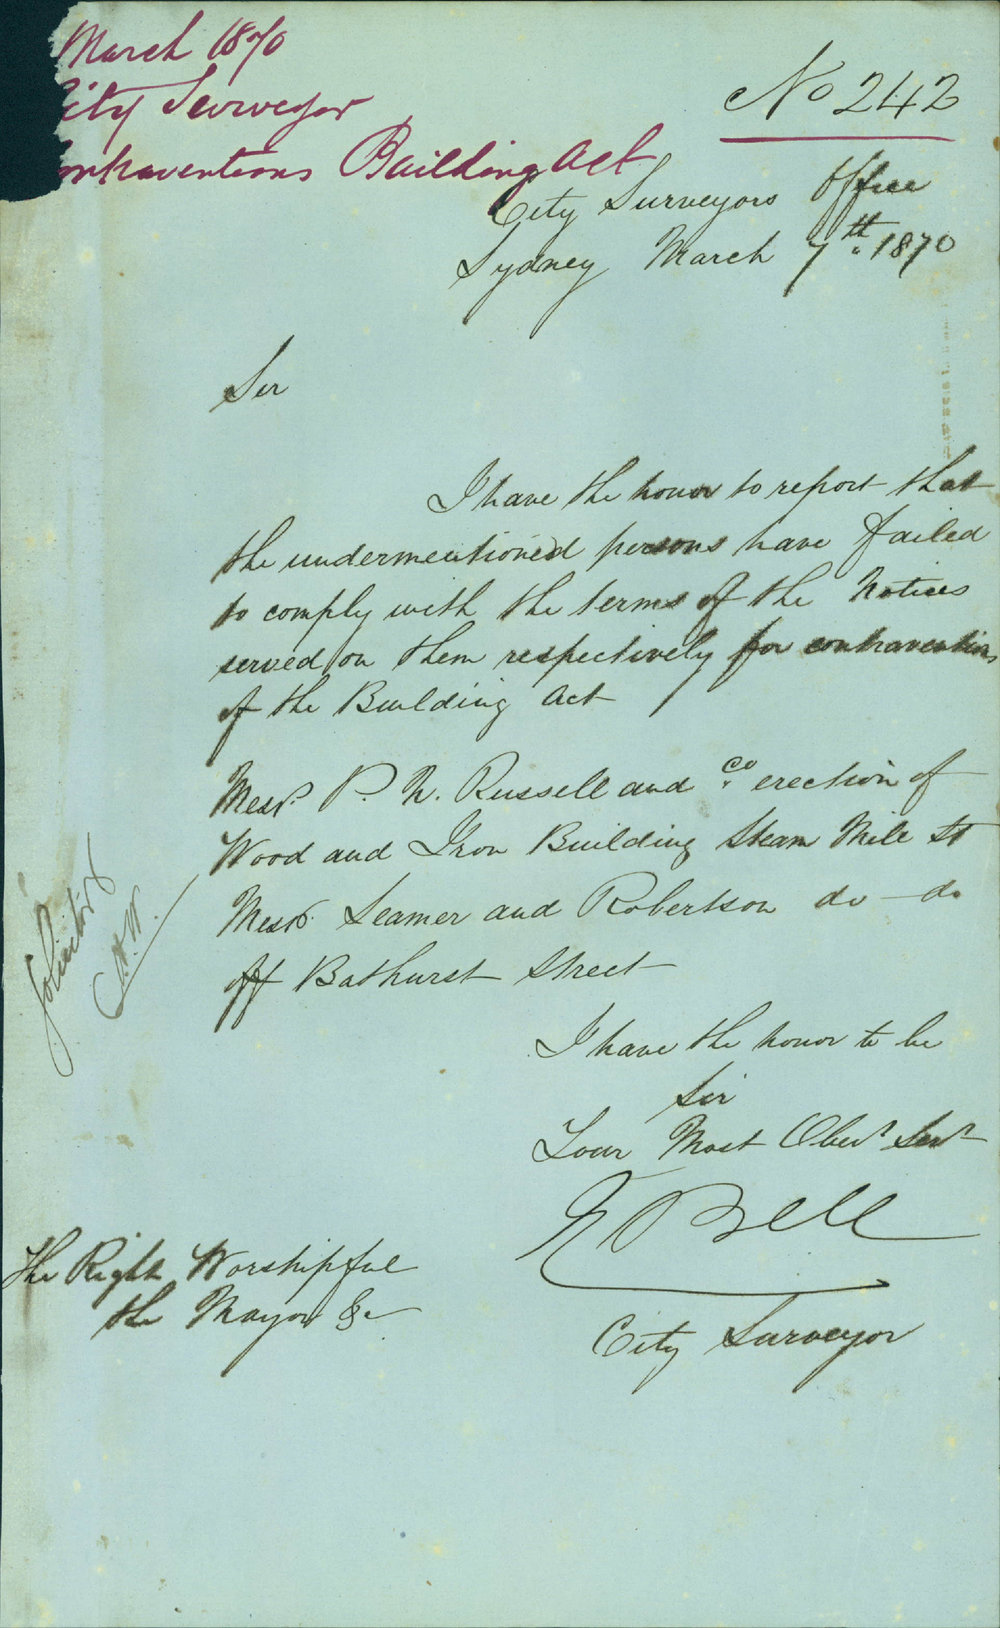 March 1870
City Surveyor
Contraventions Building Act
No 242
City Surveyors Office
Sydney March 7th. 1870
Sir
I have the honor to report that
the undermentioned persons have failed
to comply with the terms of the Notices
served on them respectively for contraventions
of the Building Act
Messrs. P. N. Russell and Co. erection of
Wood and Iron Building Steam Mill St
Messrs. Seamer and Robertson do – do
off Bathurst Street
Solicitor
I have the honor to be
Sir
Your Most Obedt Servt
E Bell
City Surveyor
The Right Worshipful
the Mayor &c